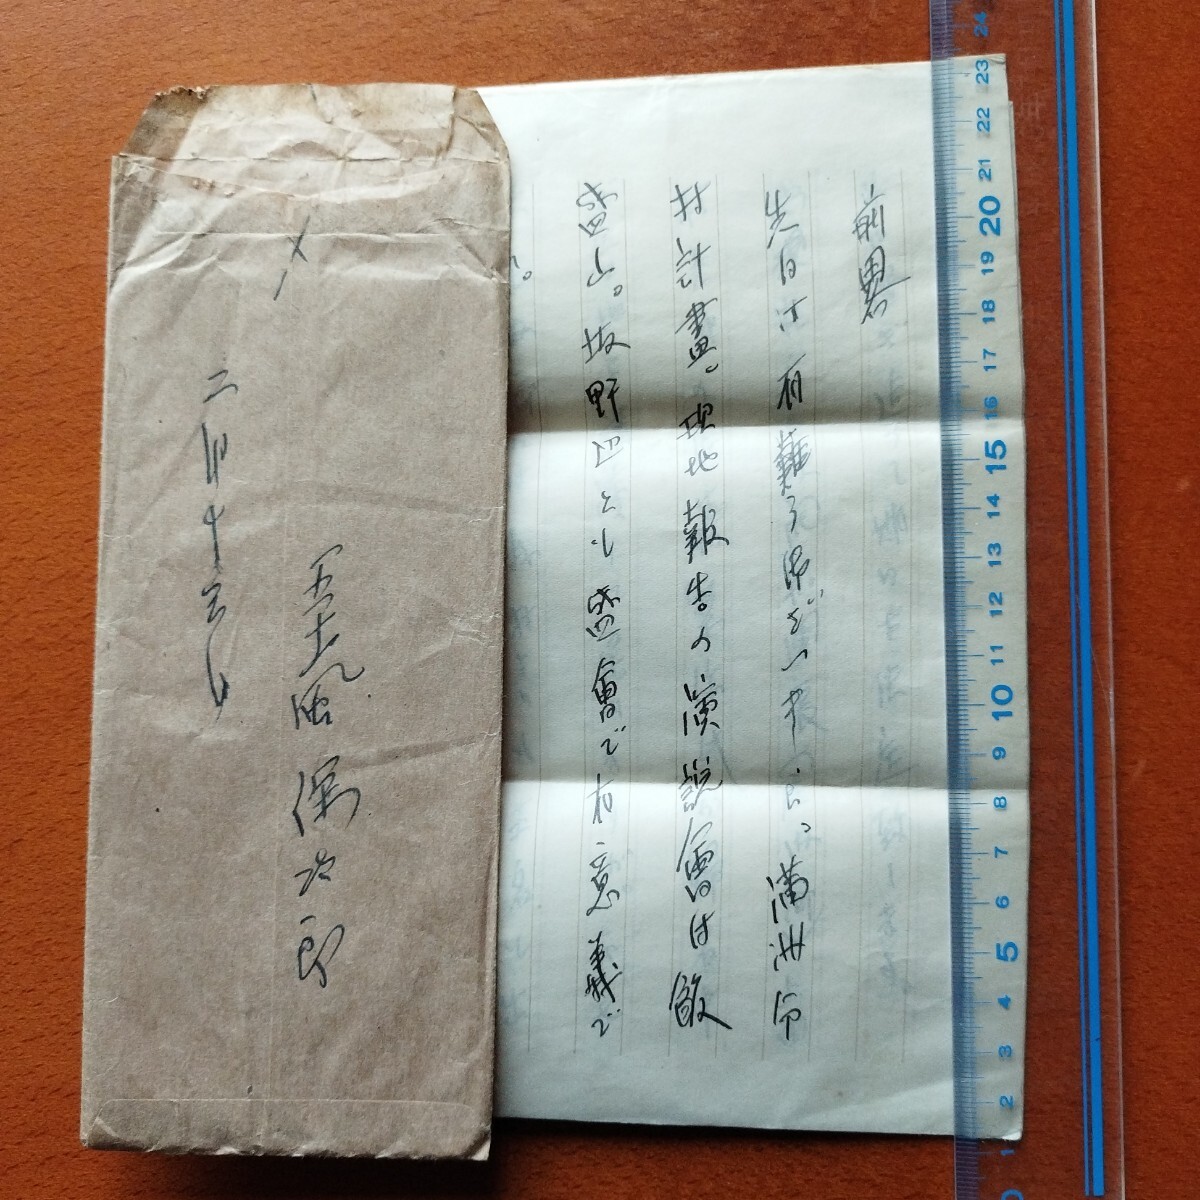 前畧
先日は有難う御ざいました。満洲分
村計畫。現地報告の演説會は飯
富山。坂野辺とも盛會で有意義で
〆
二月十三日
五十嵐 保次郎
24
23
22
21
20
19
18
17
16
15
14
13
12
11
10
9
8
7
6
5
4
3
2
1